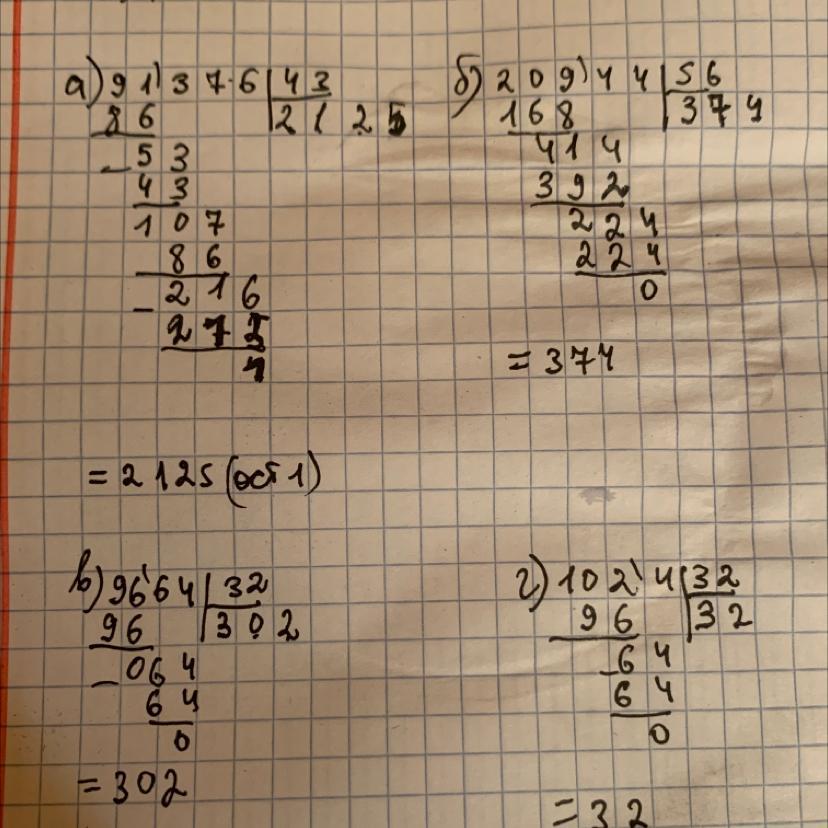 а) 91'37·6 | 43
86 | 2125
- 53
43
107
86
- 216
275
1
= 2125 (ост 1)
б) 209'44 | 56
168 | 374
414
392
224
224
0
= 374
в) 96'64 | 32
96 | 302
- 064
64
0
= 302
г) 102'4 | 32
96 | 32
- 64
64
0
= 32